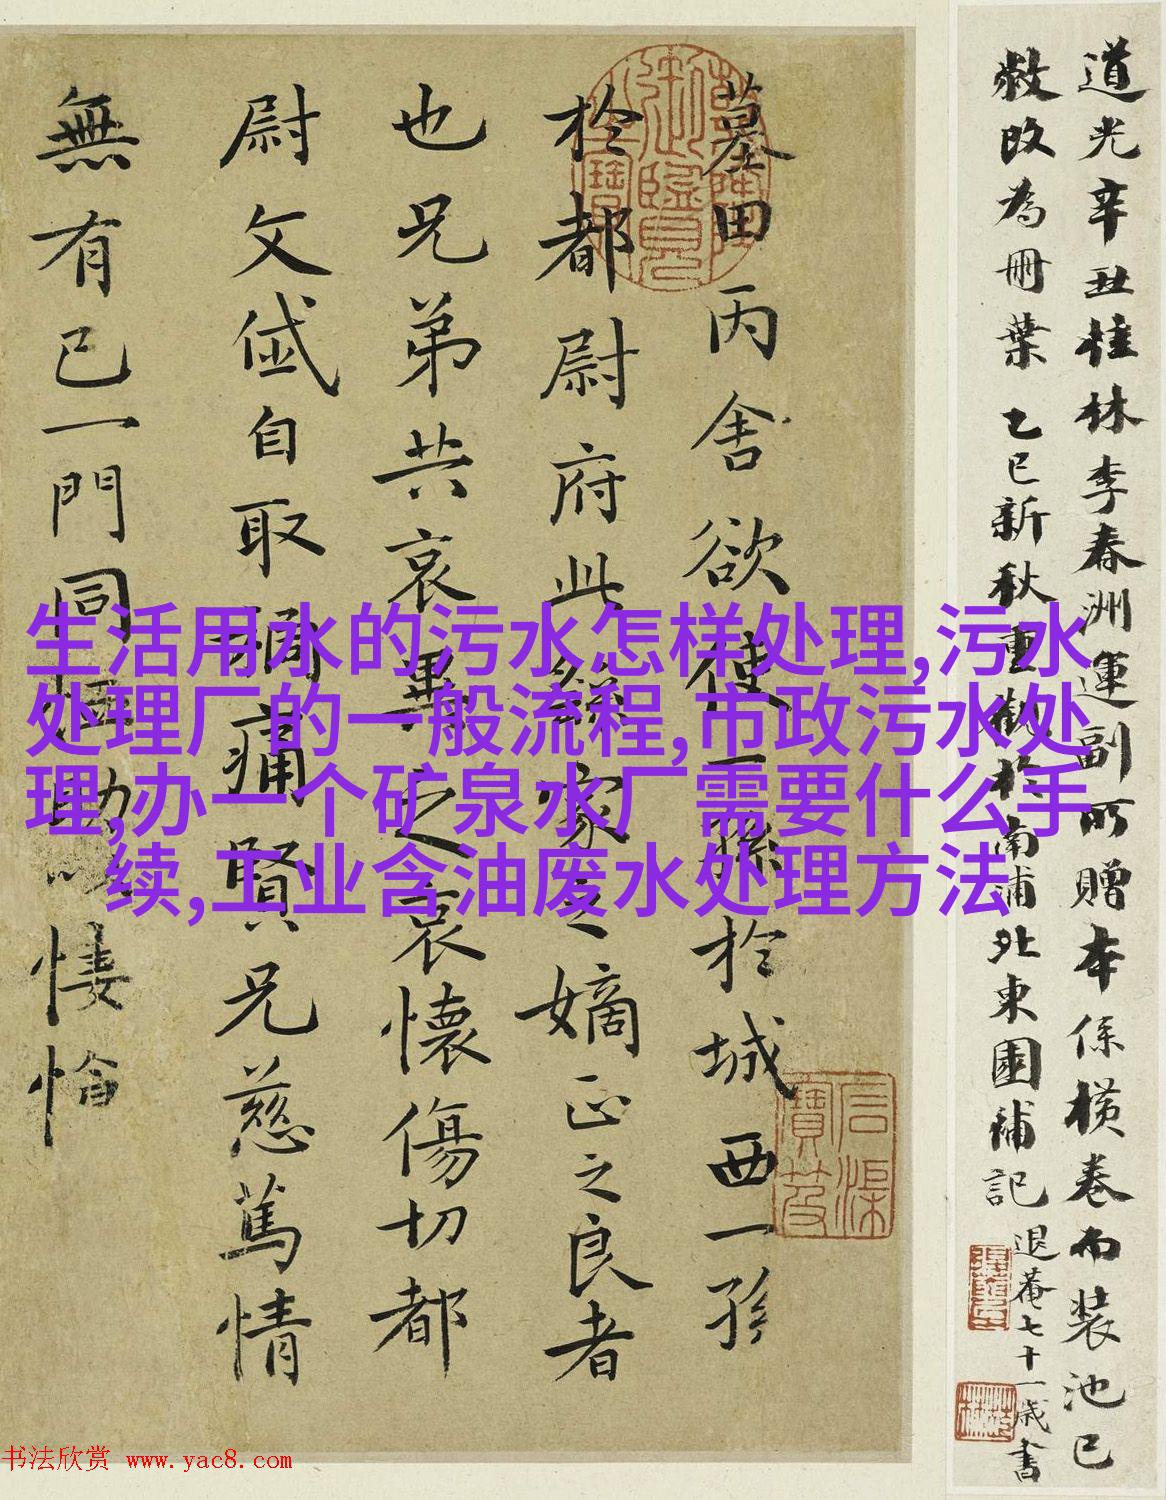 道光辛丑桂林李春洲運副所贈本係橫卷而裝池已
敝改為冊葉 乙巳新秋重觀於南浦北東園補記
退菴七十一歲書
墓田丙舍欲使一孫於城西一孫
於都尉府此繇家之嫡正之良者
也兄弟共哀異之哀懷傷切都
尉文岱自取禍痛賢兄慈篤情
無有已一門同恤助以悽愴
御覽
生活用水的污水怎样处理,污水
处理厂的一般流程,市政污水处
理,办一个矿泉水厂需要什么手
续,工业含油废水处理方法
书法欣赏 www.yac8.com